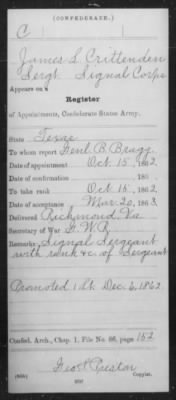 (CONFEDERATE.)
C
James L Crittenden
Sergt. Signal Corps
Appears on a
Register
of Appointments, Confederate States Army.
State Texas
To whom report Genl. B. Bragg
Date of appointment Oct 15, 1862.
Date of confirmation , 186 .
To take rank Oct 15, 1862
Date of acceptance Mar 20, 1863
Delivered Richmond, Va
Secretary of War G. W. R.
Remarks: Signal Sergeant
with rank &c. of Sergeant
Promoted 1 Lt. Dec 6, 1862
Confed. Arch., Chap. 1, File No. 86, page 152
Geo L Preston
Copyist.